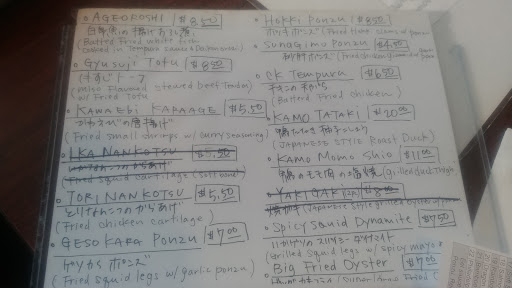 AGEOROSHI $8.50
白身魚の揚げおろし
(Batted Fried white fish
soaked in Tempura sauce & Daikon
Gyusuji Tofu $8.50
牛すじトーフ
(Miso Flavored stewed Beef Tendon
w/ Fried Tofu
Kawa Ebi KARAAGE $5.50
かわえびの唐揚げ
(Fried small shrimps w/ curry seasoning)
IKA NANKOTSU
なんこつからあげ
(Fried squid cartilage (soft bone)
TORI NANKOTSU $5.50
とりなんこつからあげ
(Fried chicken cartilage)
GESO KARA PONZU $7.00
ゲソから ポンズ
(Fried squid legs w/ garlic ponzu)
Hokki Ponzu $8.50
ホッキポンズ (Fried surf clams w/ ponzu
Sunagimo Ponzu
砂肝ポンズ
CK Tempura $6.50
チキンの天ぷら
(Batted Fried chicken)
KAMO TATAKI $20.00
鴨たたき
(JAPANESE STYLE Roast Duck)
KAMO MOMO Shio $11.00
鴨のモモ肉の塩焼 (grilled duck thigh
YAKI GAKI
(Japanese style grilled oyster
Spicy Squid Dynamite $7.50
イカゲソの スパイシー ダイナマイト
(Grilled squid legs w/ spicy mayo
Big Fried Oyster $7.00